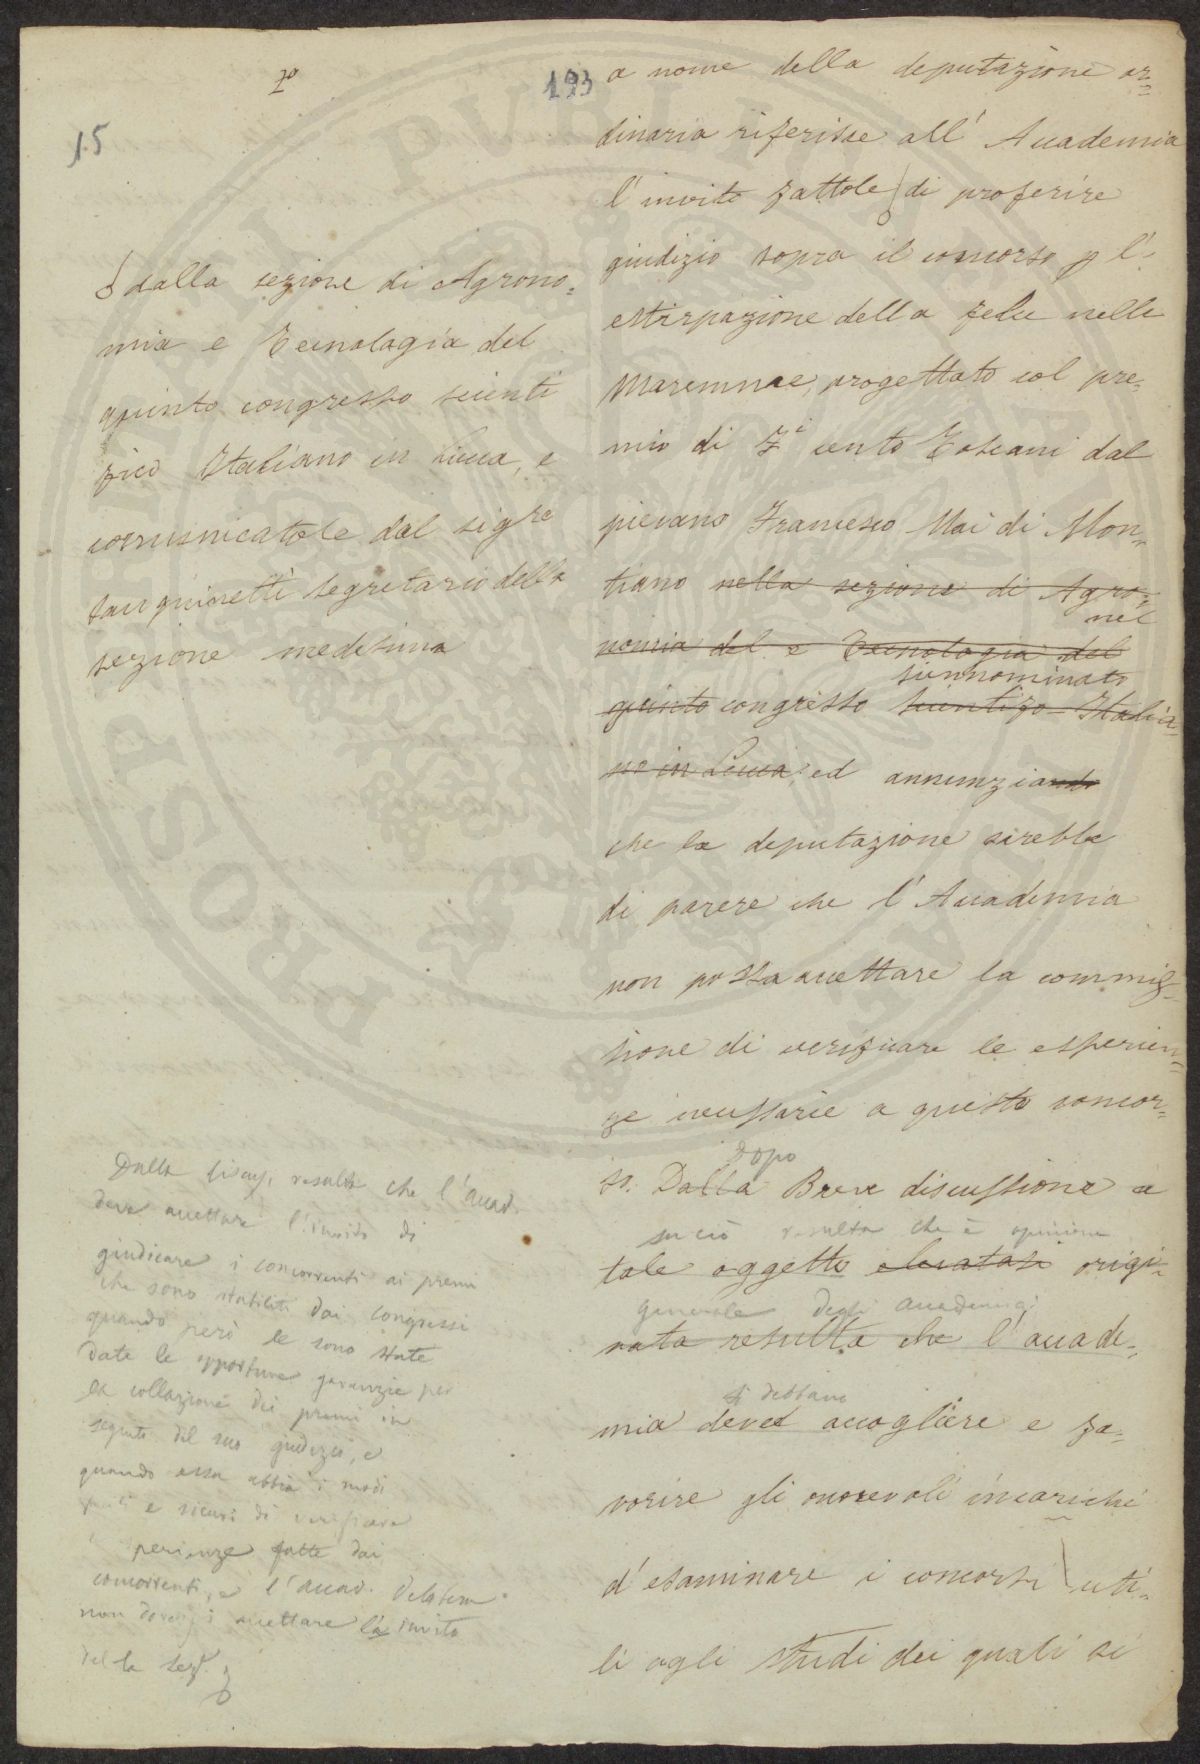 2º
193
15
a nome della deputazione or=
dinaria riferisce all' Accademia
l'invito fattole di proferire
giudizio sopra il concorso p l'
estirpazione della felce nelle
Maremme, progettato col pre=
mio di Fi cento Toscani dal
pievano Francesco Mai di Mon=
tiano nella sezione di Agro=
nel
nomia del e Tecnologia del
sunnominato
quinto congresso scientifo Italia=
no in Lucca, ed annunziando
che la deputazione sarebbe
di parere che l'Accademia
non possa accettare la commis=
sione di verificare le esperien=
ze necessarie a questo concor=
dopo
so. Dalla Breve discussione a
su ciò resulta che è opinione
tale oggetto elevatasi origi=
generale degli accademici
nata resulta che l'accade=
si debbano
mia deved accogliere e fa=
vorire gli onorevoli incarichi
d'esaminare i concorsi uti=
li agli studi dei quali si
dalla sezione di Agrono=
mia e Tecnologia del
quinto congresso scienti
fico Italiano in Lucca, e
comunicatole dal sigre
Sanquinetti segretario della
sezione medesima
Dalla discus. resulta che l'accad.
deve accettare l'invito di
giudicare i concorrenti ai premi
che sono stabiliti dai congressi
quando però le sono state
date le opportune garanzie per
la collazione dei premi in
seguito del suo giudizio, e
quando essa abbia i modi
e sicuri di verificare
perienze fatte dai
concorrenti, e l'accad.
non accettare la invito
della sezⁿ.